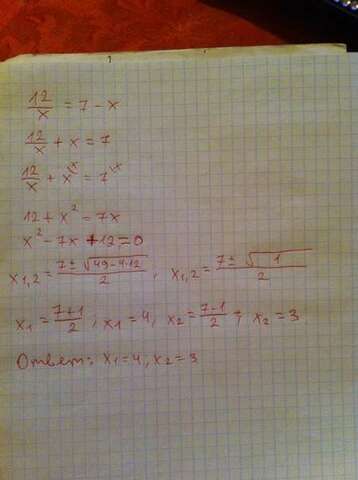 12/x = 7 - x
12/x + x = 7
12/x + x^x = 7^x
12 + x² = 7x
x² - 7x + 12 = 0
x1,2 = (7 ± √(49 - 4·12))/2, x1,2 = (7 ± √1)/2
x1 = (7+1)/2; x1 = 4, x2 = (7-1)/2; x2 = 3
Ответ: x1 = 4, x2 = 3